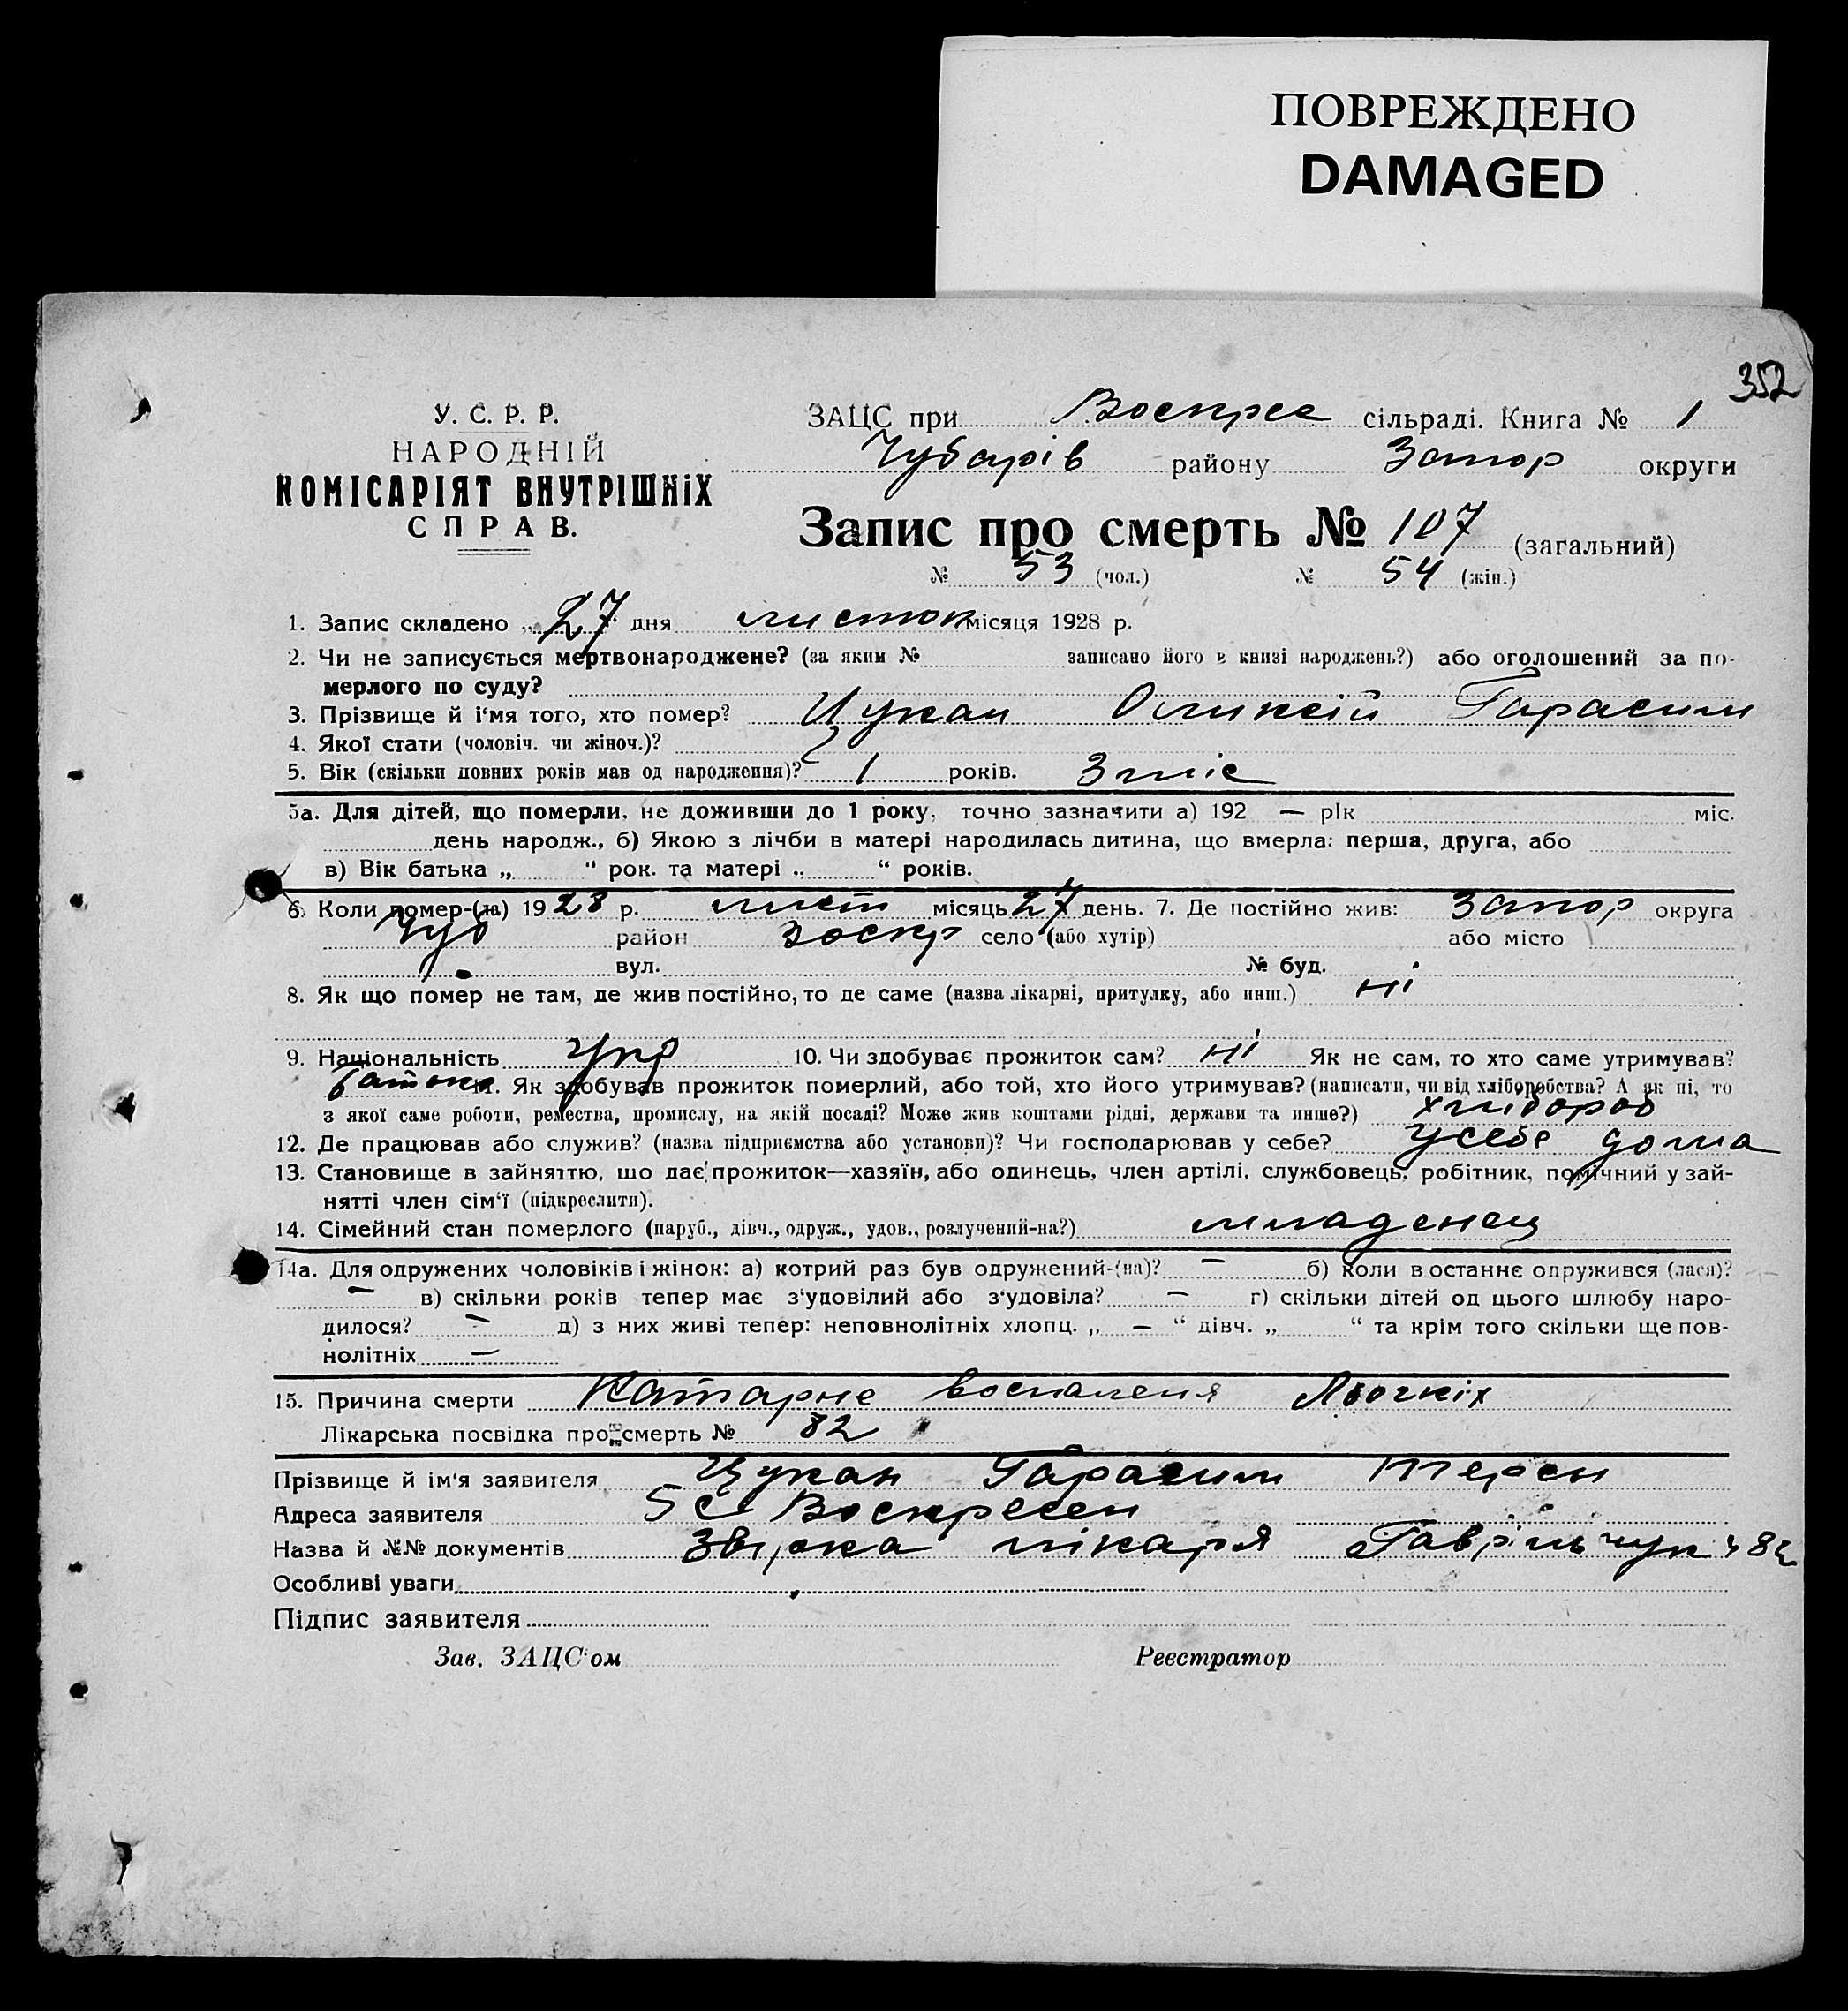 ПОВРЕЖДЕНО
DAMAGED
352
У. С. Р. Р.
НАРОДНІЙ
КОМІСАРІЯТ ВНУТРІШНІХ
СПРАВ.
ЗАЦС при Воскрес сільраді. Книга № 1
Чубарів району Запор округи
Запис про смерть № 107 (загальний)
№ 53 (чол.) № 54 (жін.)
1. Запис складено „27" дня листоп місяця 1928 р.
2. Чи не записується мертвонароджене? (за яким № записано його в книзі народжень?) або оголошений за по-
мерлого по суду?
3. Прізвище й і'мя того, хто помер? Цукан Оликсій Гарасим
4. Якої стати (чоловіч. чи жіноч.)?
5. Вік (скільки повних років мав од народження)? 1 років. 3 міс
5а. Для дітей, що померли, не доживши до 1 року, точно зазначити а) 192 — рік міс.
день народж., б) Якою з лічби в матері народилась дитина, що вмерла: перша, друга, або
в) Вік батька „ “ рок. та матері „ “ років.
6. Коли помер-(ла) 1928 р. лист місяць 27 день. 7. Де постійно жив: Запор округа
Чуб район Воскр село (або хутір) або місто
вул. № буд.
8. Як що помер не там, де жив постійно, то де саме (назва лікарні, притулку, або инш.) ні
9. Національність Укр 10. Чи здобуває прожиток сам? ні Як не сам, то хто саме утримував?
батько 11. Як здобував прожиток померлий, або той, хто його утримував? (написати, чи від хліборобства? А як ні, то
з якої саме роботи, ремества, промислу, на якій посаді? Може жив коштами рідні, держави та инше?) хлибороб
12. Де працював або служив? (назва підприємства або установи)? Чи господарював у себе? У себе дома
13. Становище в зайняттю, що дає прожиток—хазяїн, або одинець, член артілі, службовець, робітник, помічний у зай-
нятті член сім‘ї (підкреслити).
14. Сімейний стан померлого (паруб., дівч., одруж., удов., розлучений-на?) младенец
14а. Для одружених чоловіків і жінок: а) котрий раз був одружений-(на)? — б) коли востаннє одружився (лася)?
— в) скільки років тепер має з‘удовілий або з‘удовіла? — г) скільки дітей од цього шлюбу наро-
дилося? — д) з них живі тепер: неповнолітніх хлопц. „ — “ дівч. „ “ та крім того скільки ще пов-
нолітніх —
15. Причина смерти Катарне воспаленя Льогкіх
Лікарська посвідка про смерть № 82
Прізвище й ім'я заявителя Цукан Гарасим
Адреса заявителя С Воскресен
Назва й №№ документів лікаря Гаврільчук 82
Особливі уваги
Підпис заявителя
Зав. ЗАЦС‘ом Реєстратор